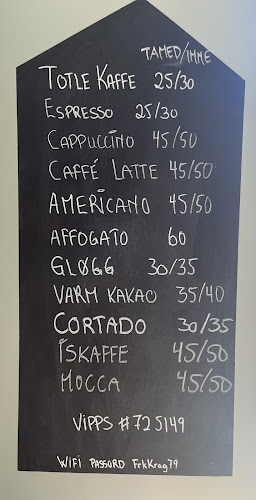 TAMED/INNE
TOTLE KAFFE 25/30
ESPRESSO 25/30
CAPPUCCINO 45/50
CAFFÉ LATTE 45/50
AMERICANO 45/50
AFFOGATO 60
GLØGG 30/35
VARM KAKAO 35/40
CORTADO 30/35
ISKAFFE 45/50
MOCCA 45/50
VIPPS #725149
WIFI PASSORD FrkKrag79